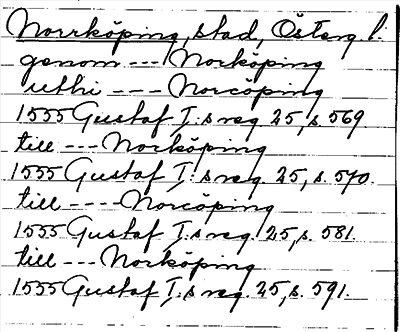 Norrköping, stad, Österg. l.
genom --- Norköping
uthi --- Norcöping
1555 Gustaf I:s reg. 25, s. 569
till --- Norköping
1555 Gustaf I:s reg. 25, s. 570.
till ---- Norcöping
1555 Gustaf I:s reg. 25, s. 581.
till --- Norköping
1555 Gustaf I:s reg. 25, s. 591.